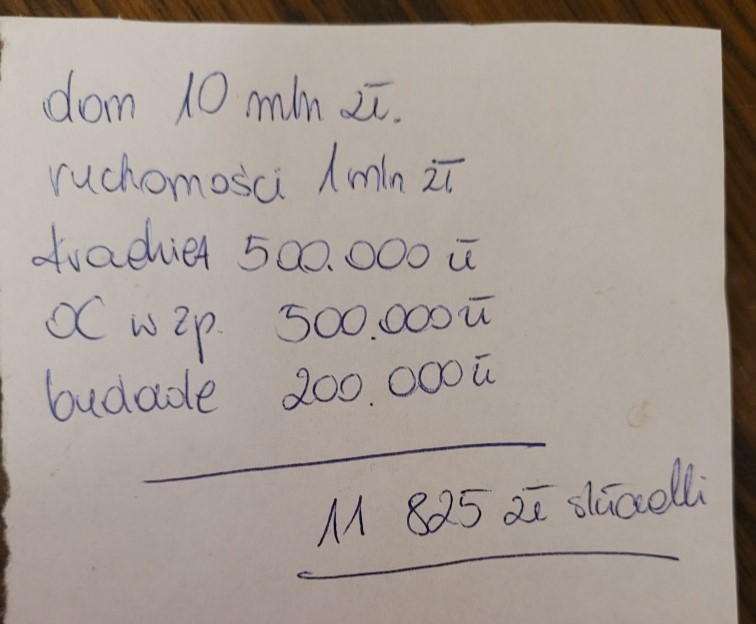 dom 10 mln zł.
ruchomości 1 mln zł
kradzież 500.000 zł
OC w żp. 500.000 zł
budowle 200.000 zł
11 825 zł składki